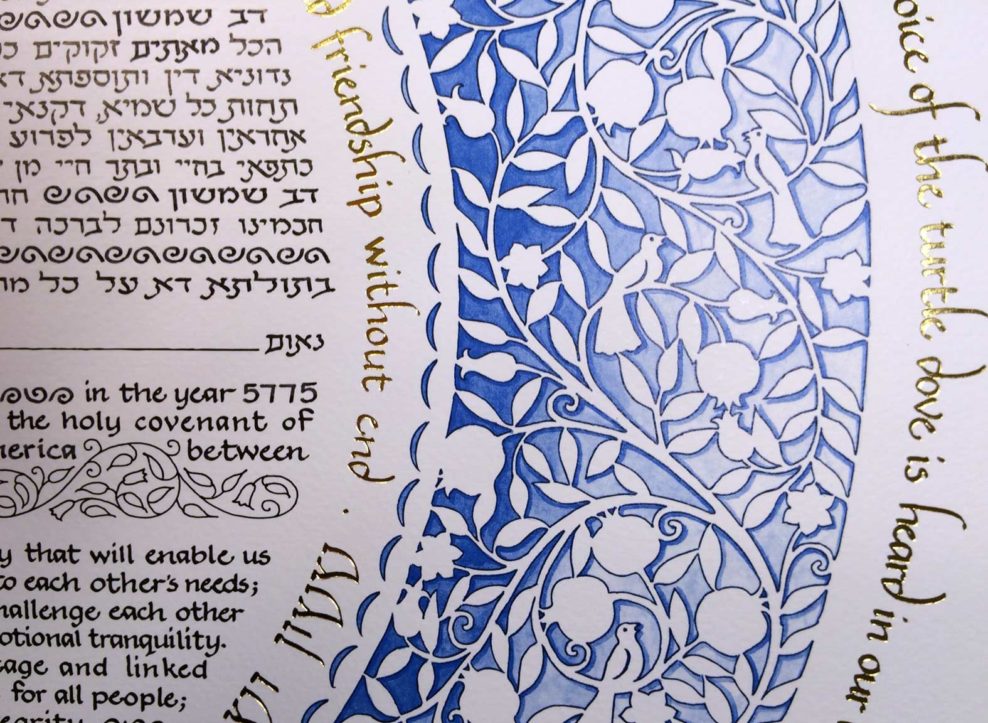 דב שמשון
הכל מאתים זקוקים
נדוניא דין ותוספתא
תחות כל שמיא, דקנאי
אחראין וערבאין לפרוע
כתפאי בחיי ובתר חיי מן
דב שמשון
חכמינו זכרונם לברכה
בתולתא דא על כל
נאום
in the year 5775
the holy covenant of
between
that will enable us
to each other's needs;
challenge each other
tranquility.
and linked
for all people;
friendship without end.
of the turtle dove is heard in our